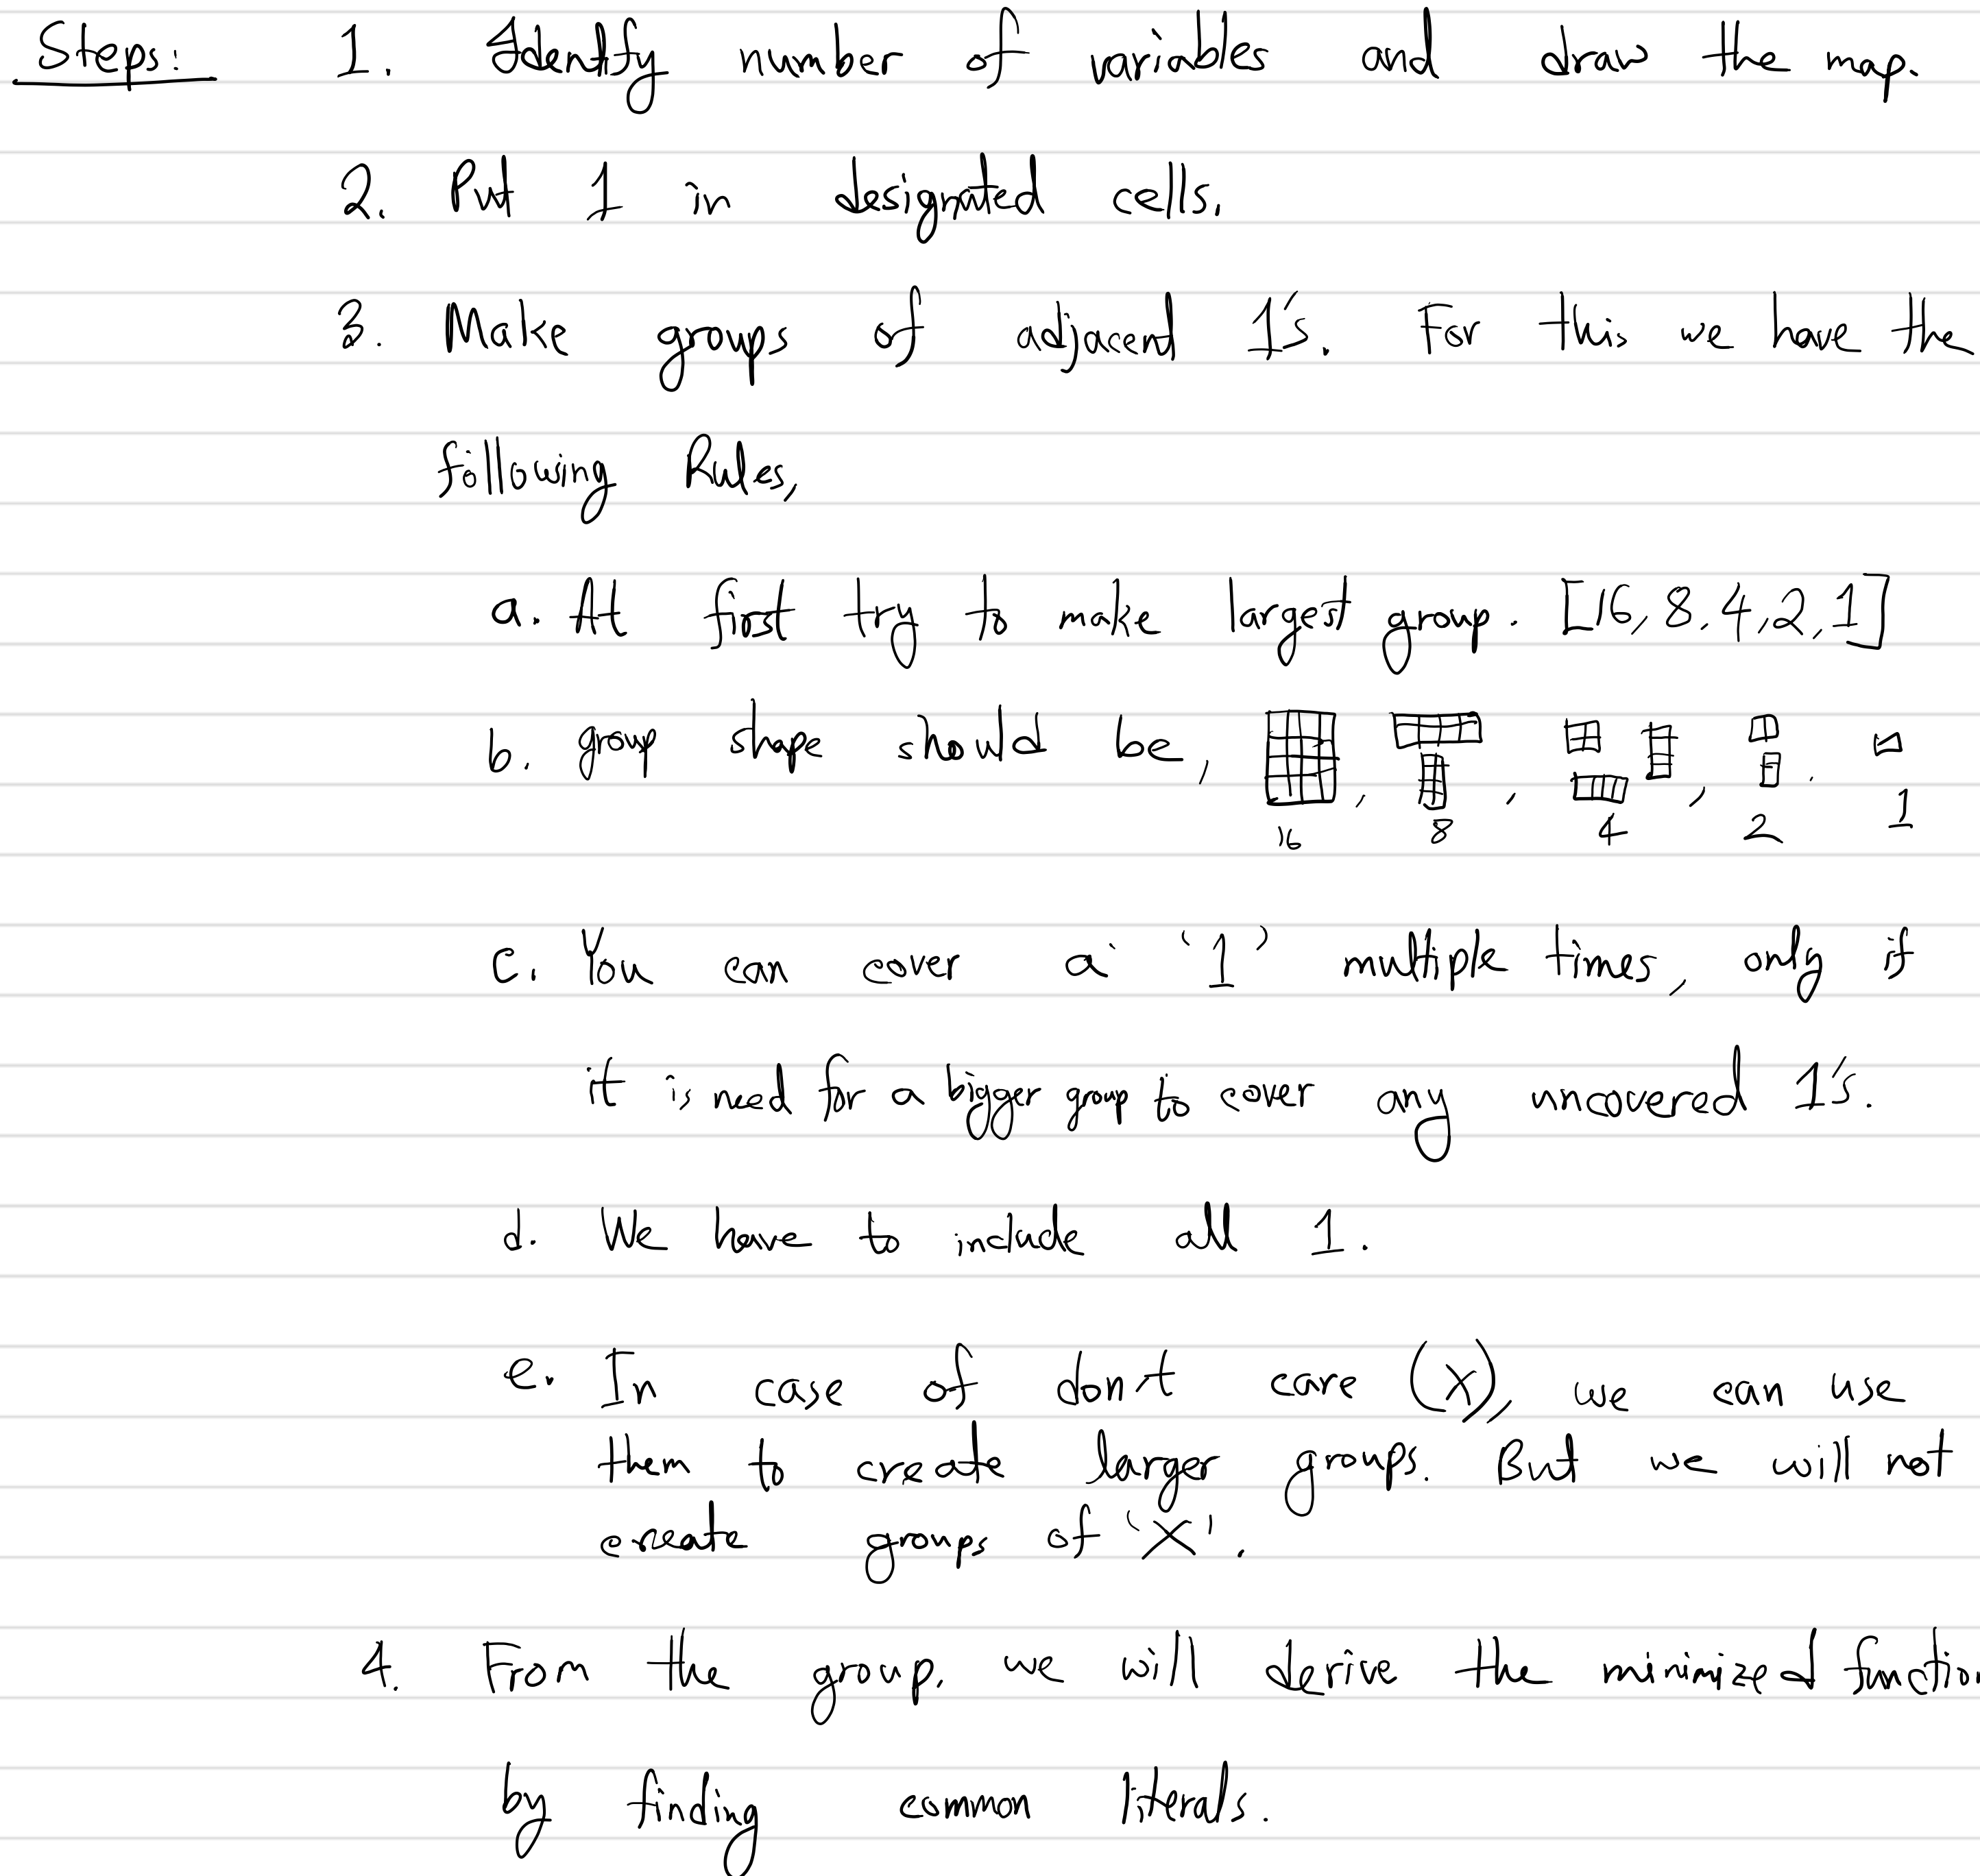 Steps: 1. Identify number of variables and draw the map.
2. Put 1 in designated cells.
3. Make groups of adjacent 1's. For this we have the
following Rules,
a. At first try to make largest group. [16, 8, 4, 2, 1]
b. group shape should be, , , , .
16 8 4 2 1
c. You can cover a '1' multiple times, only if
it is need for a bigger group to cover any uncovered 1's.
d. We have to include all 1.
e. In case of don't care (X), we can use
them to create larger groups. But we will not
create groups of 'X'.
4. From the group, we will derive the minimized function
by finding common literals.